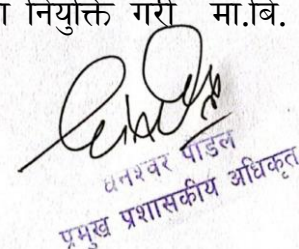 नियुक्ति गरी मा.बि.
धनेश्वर पौडेल
प्रमुख प्रशासकीय अधिकृत